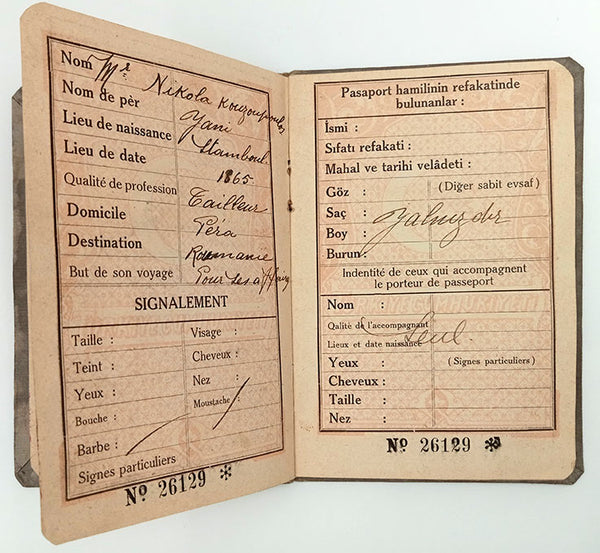 Nom Mr Nikola Kouzoupoulos
Nom de pèr Yani
Lieu de naissance Stamboul
Lieu de date 1865
Qualité de profession Tailleur
Domicile Péra
Destination Roumanie
But de son voyage Pour ses affaires
SIGNALEMENT
Taille : Visage :
Teint : Cheveux :
Yeux : Nez :
Bouche : Moustache :
Barbe :
Signes particuliers
No 26129 *
Pasaport hamilinin refakatinde
bulunanlar :
İsmi :
Sıfatı refakati :
Mahal ve tarihi velâdeti :
Göz : (Diğer sabit evsaf)
Saç :
Boy : Yalnızdır
Burun :
Indentité de ceux qui accompagnent
le porteur de passeport
Nom :
Qalité de l'accompagnant
Lieux et date naissance Seul.
Yeux : (Signes particuliers)
Cheveux :
Taille :
Nez :
No 26129 *